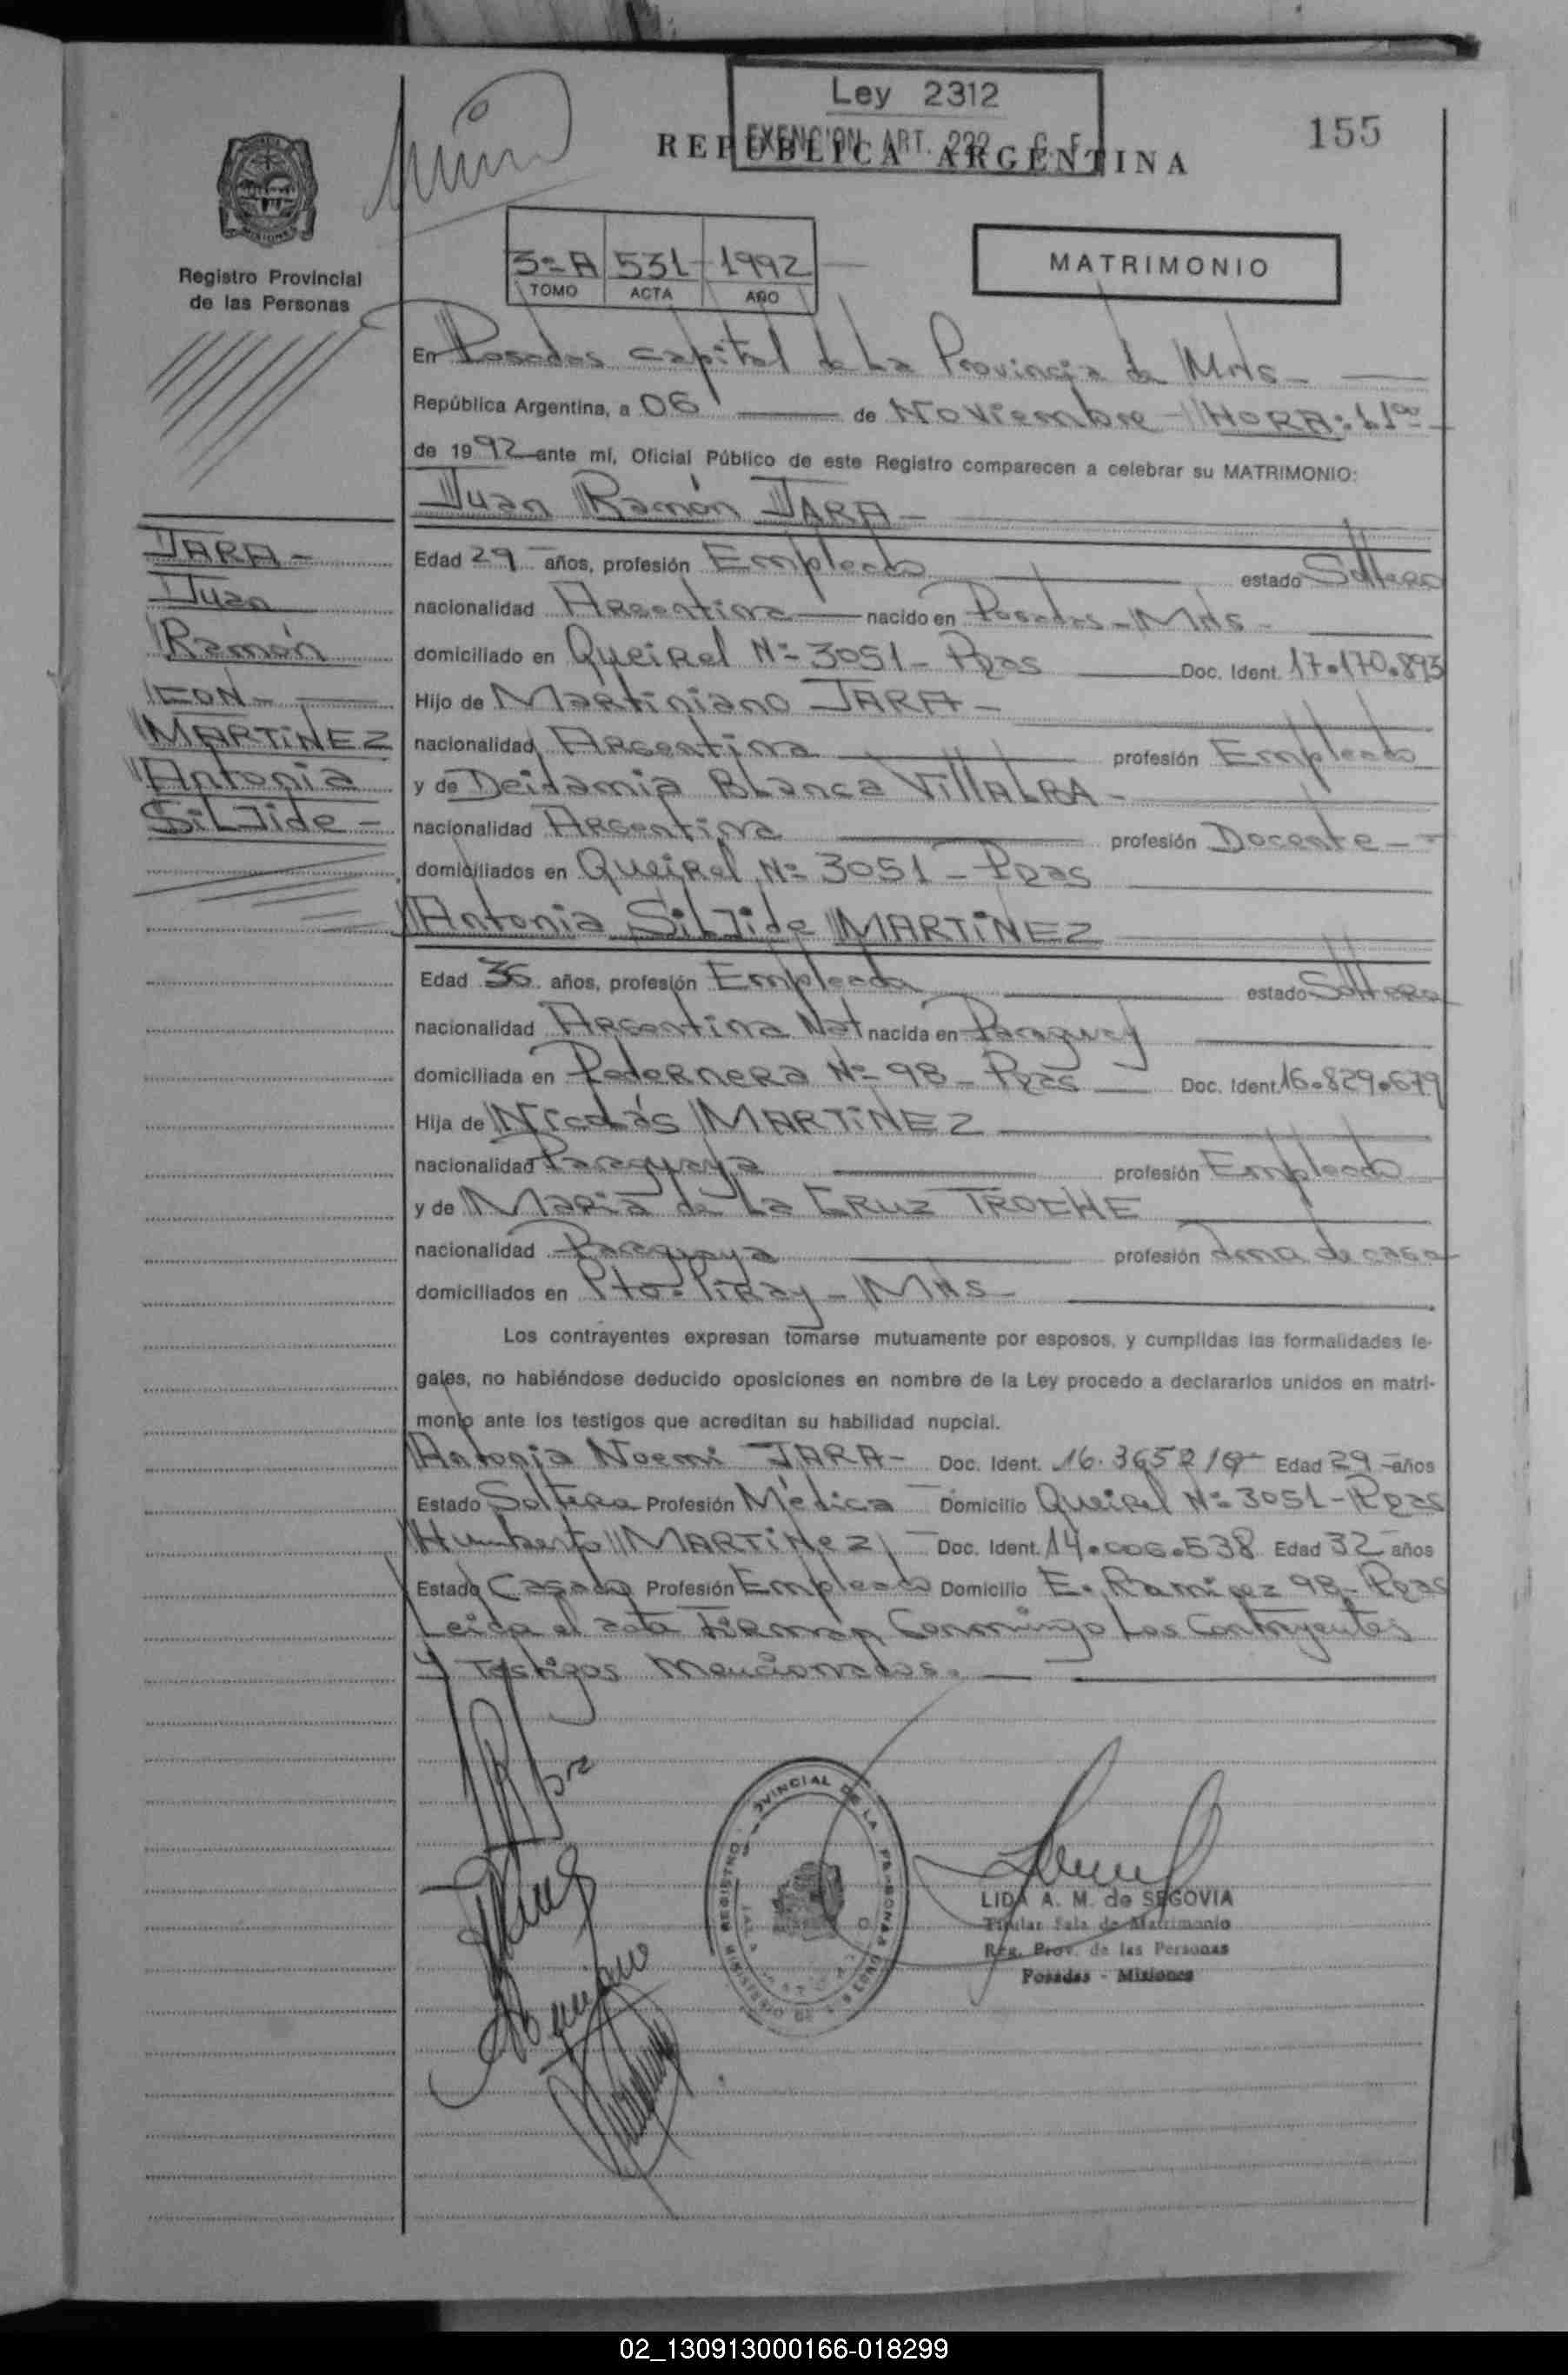 Ley 2312
EXENCION ART. 222 C. F.
155
REPUBLICA ARGENTINA
MISIONES
Registro Provincial
de las Personas
3º A 531 1992
TOMO ACTA AÑO
MATRIMONIO
En Posadas Capital de La Provincia de Mns-
República Argentina, a 06 de Noviembre HORA: 11ºº
de 1992 ante mí, Oficial Público de este Registro comparecen a celebrar su MATRIMONIO:
Juan Ramón JARA-
JARA-
Juan
Ramón
CON-
MARTINEZ
Antonia
SiLJide-
Edad 29 años, profesión Empleado estado Soltero
nacionalidad Argentina nacido en Posadas-Mns-
domiciliado en Queirel Nº 3051- Pdas Doc. Ident. 17.170.893
Hijo de Martiniano JARA-
nacionalidad Argentina profesión Empleado
y de Deidamia BLanca ViLLALBA-
nacionalidad Argentina profesión Docente-
domiciliados en Queirel Nº 3051- Pdas
Antonia SiLJide MARTINEZ
Edad 36 años, profesión Empleada estado Soltera
nacionalidad Argentina Nat nacida en Paraguay
domiciliada en Pedernera Nº 98- Pdas Doc. Ident. 16.829.679
Hija de Nicolás MARTINEZ
nacionalidad Paraguaya profesión Empleado
y de Maria de La CRUZ TROCHE
nacionalidad Paraguaya profesión Ama de casa
domiciliados en Pto. Piray-Mns-
Los contrayentes expresan tomarse mutuamente por esposos, y cumplidas las formalidades le-
gales, no habiéndose deducido oposiciones en nombre de la Ley procedo a declararlos unidos en matri-
monio ante los testigos que acreditan su habilidad nupcial.
Antonia Noemi JARA- Doc. Ident. 16.365 Edad 29 años
Estado Soltera Profesión Médica Domicilio Queirel Nº 3051- Pdas
Humberto MARTINEZ Doc. Ident. 14.006.538 Edad 32 años
Estado Casado Profesión Empleado Domicilio E. Ramirez 98- Pdas
Leida el acta Firman Conmigo Los Contrayentes
y Testigos Mencionados.
LIDA A. M. de SEGOVIA
Titular Sala de Matrimonio
Reg. Prov. de las Personas
Posadas - Misiones
02_130913000166-018299